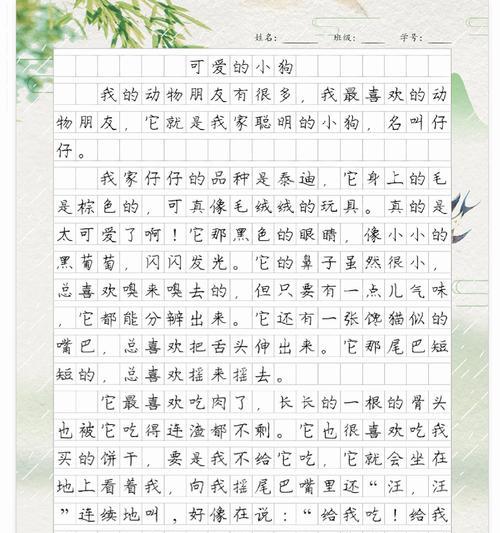 姓名：______ 班级：______ 学号：______
可爱的小狗
我的动物朋友有很多，我最喜欢的动
物朋友，它就是我家聪明的小狗，名叫仔
仔。
我家仔仔的品种是泰迪，它身上的毛
是棕色的，可真像毛绒绒的玩具。真的是
太可爱了啊！它那黑色的眼睛，像小小的
黑葡萄，闪闪发光。它的鼻子虽然很小，
总喜欢嗅来嗅去的，但只要有一点儿气味
，它都能分辨出来。它还有一张馋猫似的
嘴巴，总喜欢把舌头伸出来。它那尾巴短
短的，总喜欢摇来摇去。
它最喜欢吃肉了，长长的一根的骨头
也被它吃得连渣都不剩。它也很喜欢吃我
买的饼干，要是我不给它吃，它就会坐在
地上看着我，向我摇尾巴嘴里还“汪，汪
”连续地叫，好像在说：“给我吃！给我